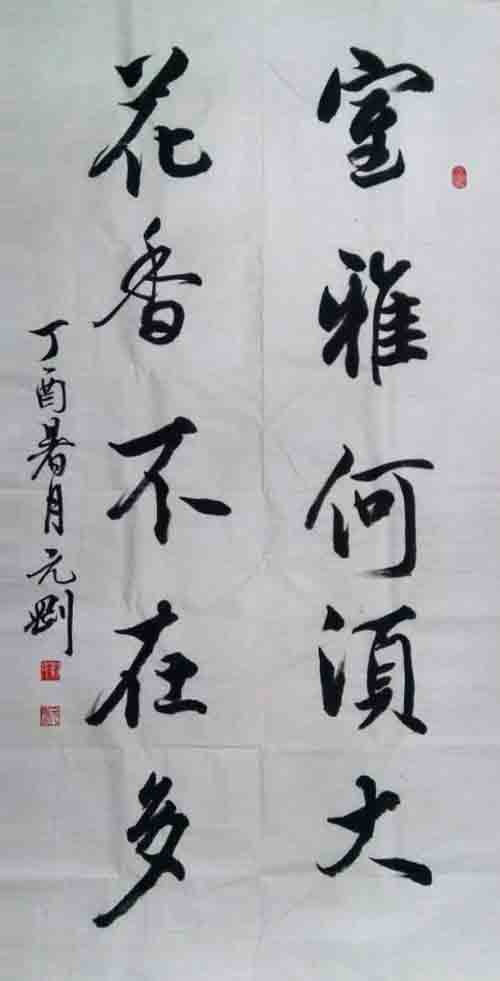 室雅何須大
花香不在多
丁酉暑月元剛